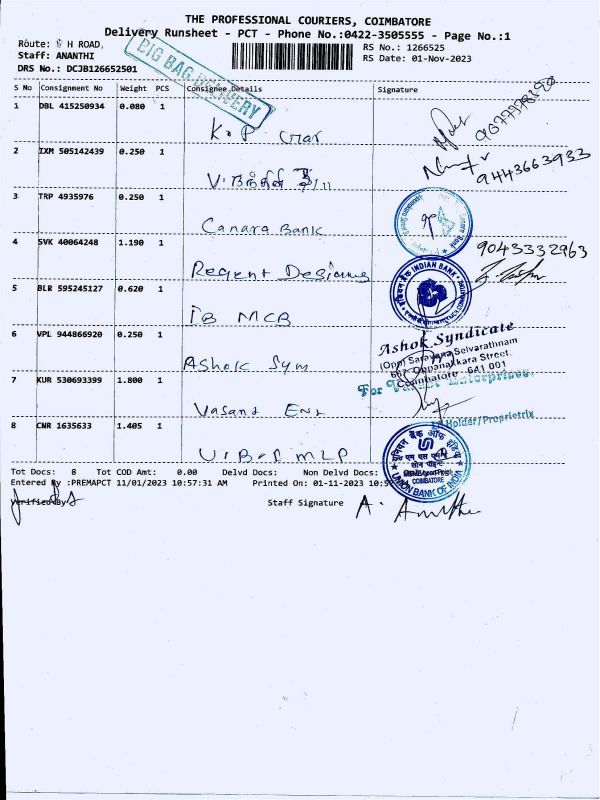 THE PROFESSIONAL COURIERS, COIMBATORE
Delivery Runsheet - PCT - Phone No.:0422-3505555 - Page No.:1
Route: H ROAD,
Staff: ANANTHI
DRS No.: DCJB126652501
RS No.: 1266525
RS Date: 01-Nov-2023
BIG BAG DELIVERY
S No Consignment No Weight PCS Consignee Details Signature
1 DBL 415250934 0.080 1
K.P.
9677778898
2 IXM 505142439 0.250 1
9443663933
3 TRP 4935976 0.250 1
Canara Bank
4 SVK 40064248 1.190 1
Regent Designs
9043332963
5 BLR 595245127 0.620 1
IB MCB
INDIAN BANK
6 VPL 944866920 0.250 1
Ashok Sym
Ashok Syndicate
(Opp) Sarayana Selvarathnam
Oppanakkara Street.
Coimbatore - 641 001
7 KUR 530693399 1.800 1
Vasant Ent
For
Holder/Proprietrix
8 CNR 1635633 1.405 1
यूनियन बैंक ऑफ इंडिया
UNION BANK OF INDIA
COIMBATORE
Tot Docs: 8 Tot COD Amt: 0.00 Delvd Docs: Non Delvd Docs:
Entered By :PREMAPCT 11/01/2023 10:57:31 AM Printed On: 01-11-2023
Verified By
Staff Signature